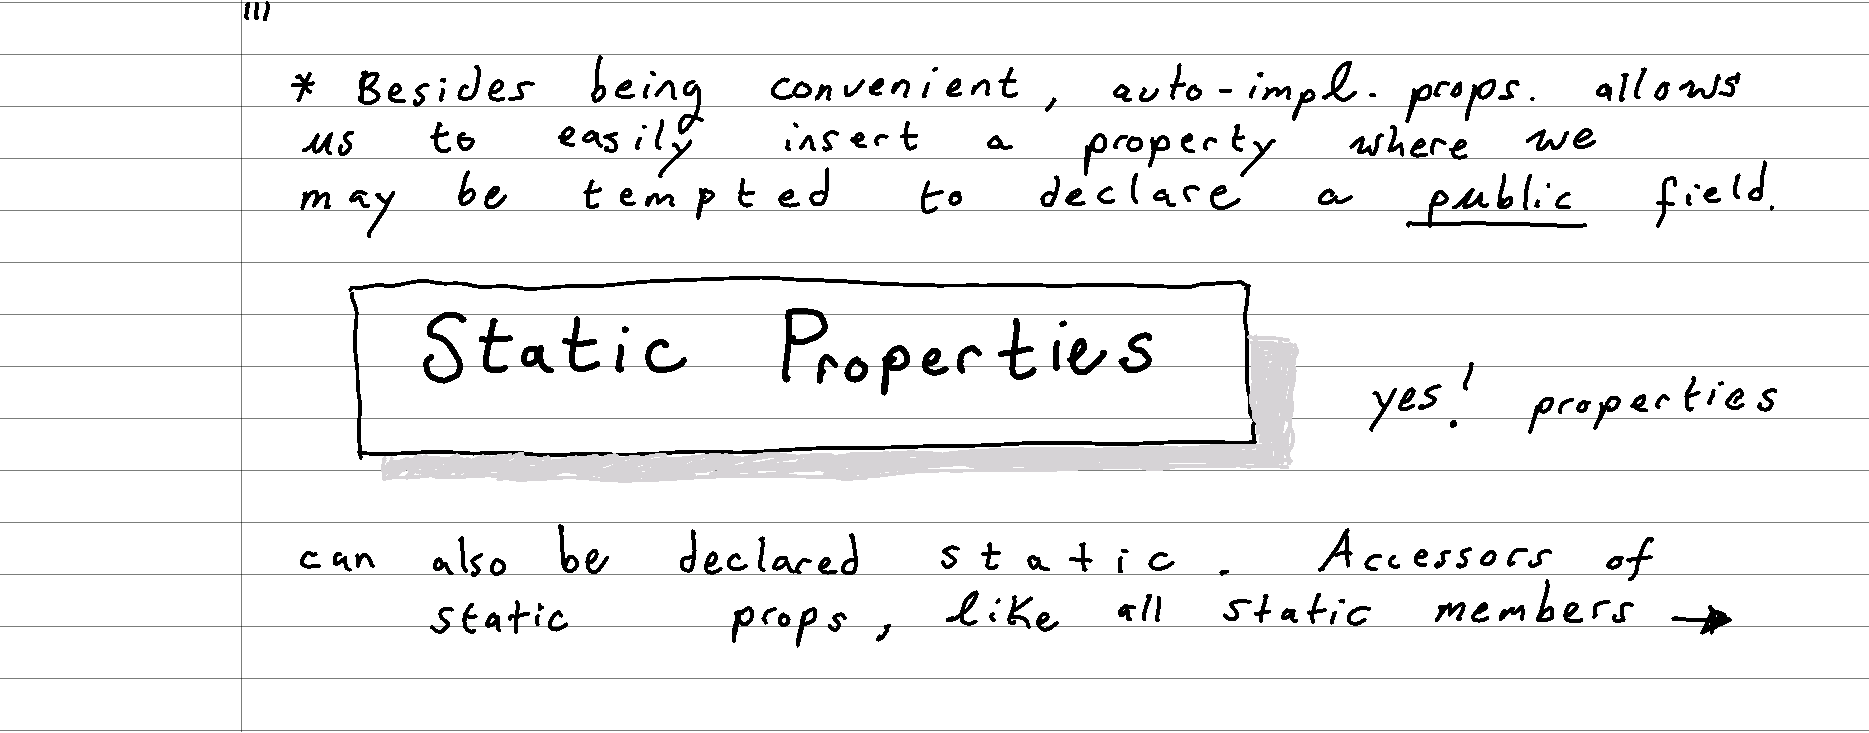 * Besides being convenient, auto-impl. props. allows
us to easily insert a property where we
may be tempted to declare a public field.
Static Properties
yes! properties
can also be declared static. Accessors of
static props, like all static members →